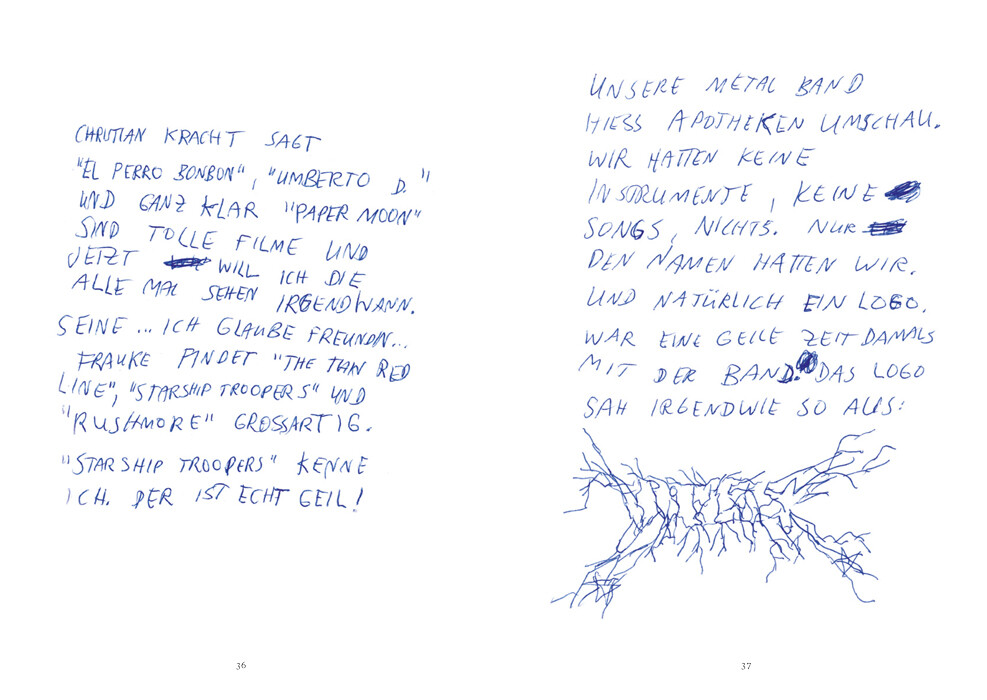 CHRISTIAN KRACHT SAGT
"EL PERRO BONBON", "UMBERTO D."
UND GANZ KLAR "PAPER MOON"
SIND TOLLE FILME UND
JETZT WILL ICH DIE
ALLE MAL SEHEN IRGENDWANN.
SEINE ... ICH GLAUBE FREUNDIN...
FRAUKE FINDET "THE THIN RED
LINE", "STARSHIP TROOPERS" UND
"RUSHMORE" GROSSARTIG.
"STARSHIP TROOPERS" KENNE
ICH. DER IST ECHT GEIL!
36
UNSERE METAL BAND
HIESS APOTHEKEN UMSCHAU.
WIR HATTEN KEINE
INSTRUMENTE, KEINE
SONGS, NICHTS. NUR
DEN NAMEN HATTEN WIR.
UND NATÜRLICH EIN LOGO.
WAR EINE GEILE ZEIT DAMALS
MIT DER BAND. DAS LOGO
SAH IRGENDWIE SO AUS:
37